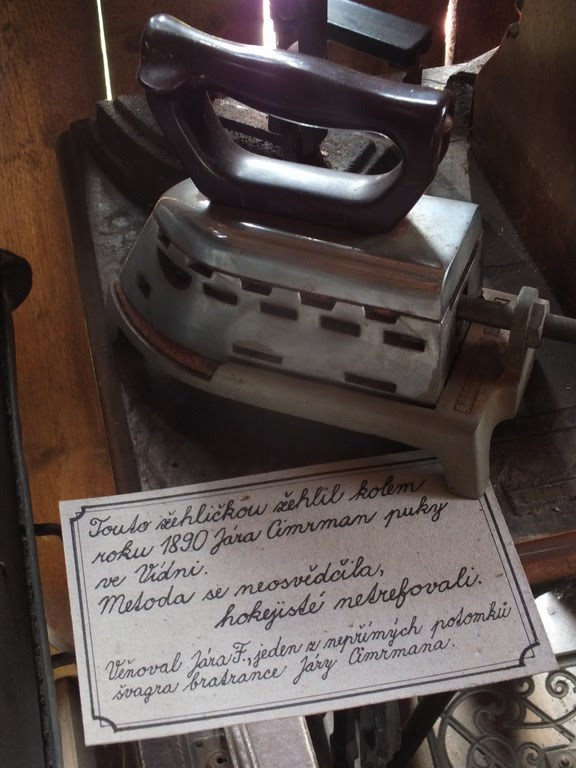 Touto žehličkou žehlil kolem
roku 1890 Jára Cimrman puky
ve Vídni.
Metoda se neosvědčila,
hokejisté netrefovali.
Věnoval Jára F., jeden z nepřímých potomků
švagra bratrance Járy Cimrmana.